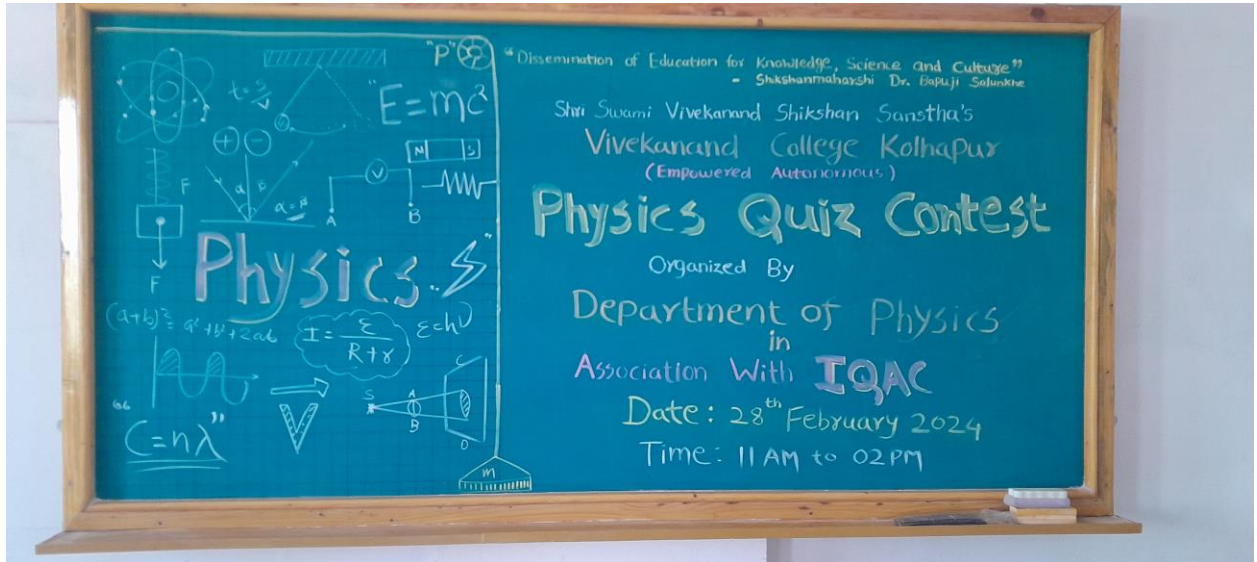 "P"
t = s/v
"E=mc²
+ -
N S
F
α β
α = β
V
A B
F
Physics"
(a+b)² = a²+b²+2ab
I = ε/R+r
ε=hν
S A B C D
"C=nλ"
m
"Dissemination of Education for Knowledge, Science and Culture"
- Shikshanmaharshi Dr. Bapuji Salunkhe
Shri Swami Vivekanand Shikshan Sanstha's
Vivekanand College Kolhapur
(Empowered Autonomous)
Physics Quiz Contest
Organized By
Department of Physics
in
Association With IQAC
Date: 28th February 2024
Time: 11 AM to 02 PM